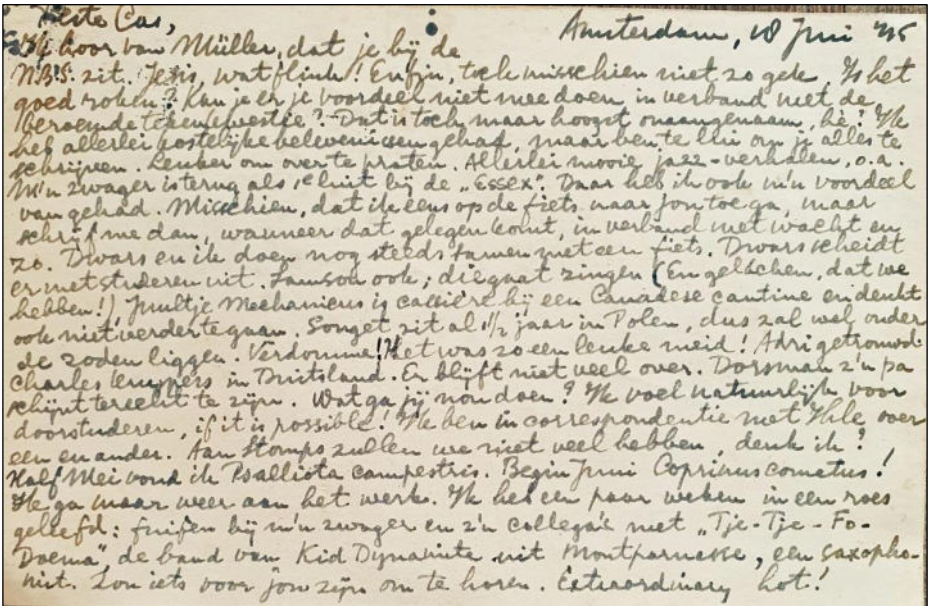 Beste Cas, Amsterdam, 18 Juni '45
Ik hoor van Müller, dat je bij de
N.B.S. zit. Jezis, wat flink! Enfin, toch misschien niet zo gek. Is het
goed roken? Kun je er je voordeel niet mee doen in verband met de
beroemde tekenkwestie? Dat is toch maar hoogst onaangenaam, hè? Ik
heb allerlei kostelijke belevenissen gehad, maar ben te lui om je alles te
schrijven. Leuker om over te praten. Allerlei mooie jazz-verhalen, o.a.
M'n zwager is terug als bij de „Essex". Daar heb ik ook m'n voordeel
van gehad. Misschien, dat ik eens op de fiets naar jou toe ga, maar
schrijf me dan, wanneer dat gelegen komt, in verband met wacht en
zo. Dwars en ik doen nog steeds samen met een fiets. Dwars scheidt
er met studeren uit. Samson ook; die gaat zingen (En gelachen, dat we
hebben!), Juultje Mechanicus is caissière bij een Canadese cantine en denkt
ook niet verder te gaan. Songet zit al 1½ jaar in Polen, dus zal wel onder
de zoden liggen. Verdomme! Het was zo een leuke meid! Adri getrouwd.
Charles Kruypers in Duitsland. Er blijft niet veel over. Dorsman z'n pa
schijnt terecht te zijn. Wat ga jij nou doen? Ik voel natuurlijk voor
doorstuderen, if it is possible! Ik ben in correspondentie met Ihle over
een en ander. Aan Stomps zullen we niet veel hebben, denk ik?
Half Mei vond ik Psalliota campestris. Begin Juni Coprinus comatus!
Ik ga maar weer aan het werk. Ik heb een paar weken in een roes
geleefd: fuifen bij m'n zwager en z'n collega's met „Tje-Tje-Fo-
Doema", de band van Kid Dynamite uit Montparnasse, een saxopho-
nist. Zou iets voor jou zijn om te horen. Extraordinary hot!